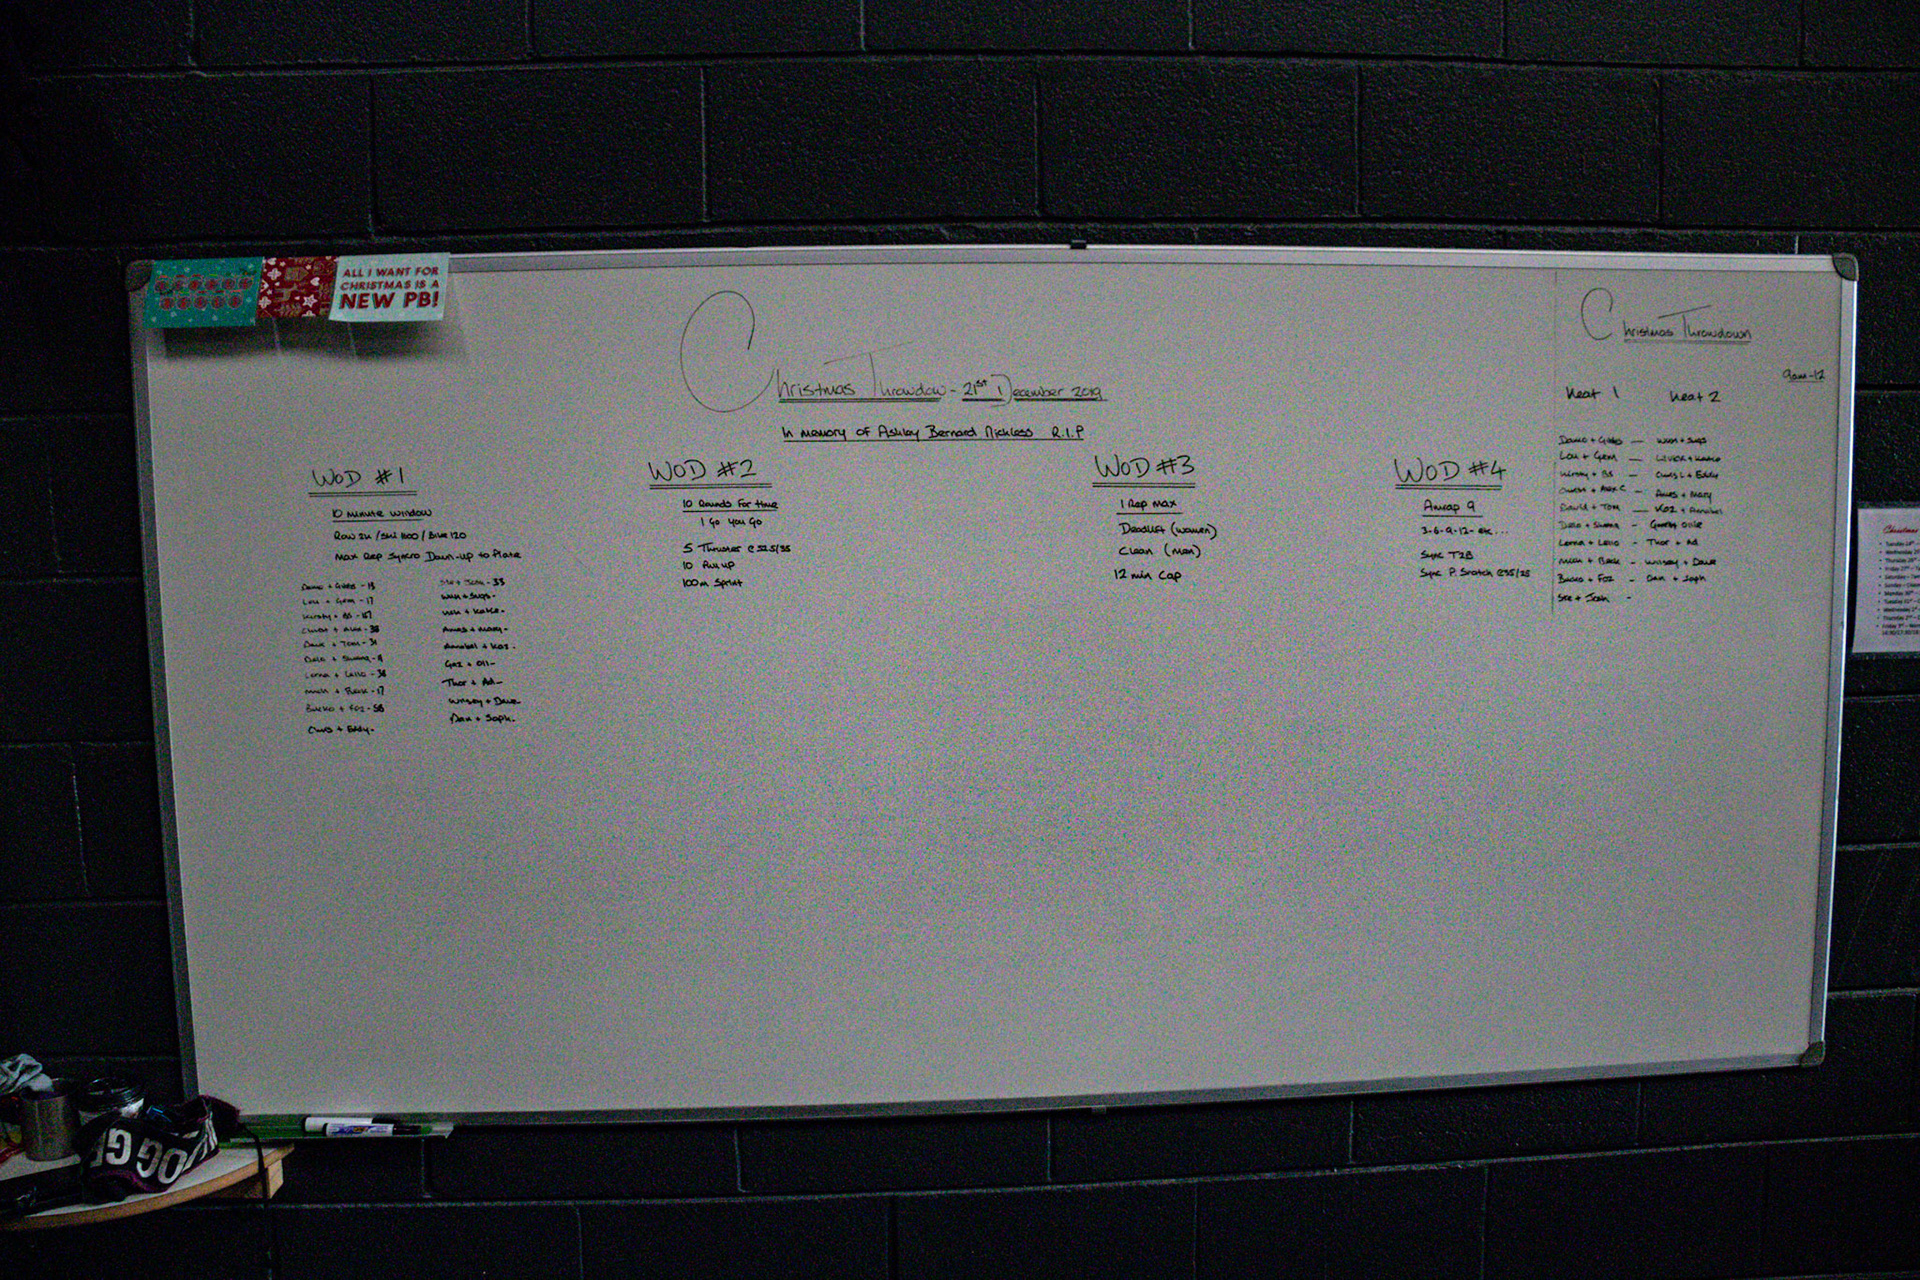 ALL I WANT FOR
CHRISTMAS IS A
NEW PB!
Christmas Throwdow - 21st December 2019
In memory of Ashley Bernard Nickless R.I.P
WOD #1
10 minute window
Row 2k / Ski 1600 / Bike 120
Max Rep Syncro Down-up to Plate
Damo + Gibbs - 13
Lou + Gem - 17
Kirsty + BS -
Christ + Alex - 38
Dave + Tom - 31
Dalo + Shauna -
Lorna + Lello - 36
Mich + Beck - 17
Bucko + Foz - 58
Chris + Eddy -
Ste + Josh - 33
Win + Sugs -
+ Katie -
Amas + Mary -
Annabel + Koz -
Gaz + Oll -
Thor + Ad -
Wilsey + Dave
Dan + Soph -
WOD #2
10 Rounds For time
1 Go You Go
5 Thruster @ 52.5/35
10 Pull up
100m Sprint
WOD #3
1 Rep Max
Deadlift (women)
Clean (men)
12 min Cap
WOD #4
Amrap 9
3-6-9-12- etc...
Sync T2B
Sync P. Snatch @35/25
Christmas Throwdown
9am-12
Heat 1 Heat 2
Damo + Gibbs — Win + Sugs
Lou + Gem — + Katie
Kirsty + BS — Chris L + Eddy
Christ + Alex C - Amas + Mary
David + Tom — Koz + Annabel
Dalo + Shauna - Ollie
Lorna + Lello - Thor + Ad
Mich + Beck - Wilsey + Dave
Bucko + Foz - Dan + Soph
Ste + Josh -
Christmas